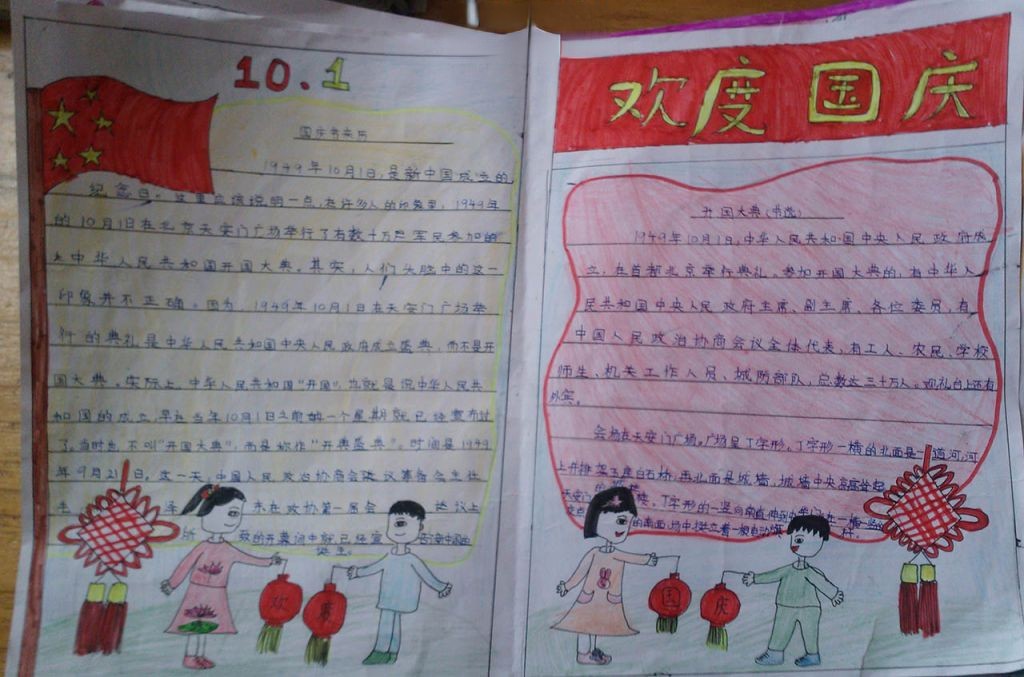 10.1
国庆节来历
1949年10月1日,是新中国成立的
纪念日。这里应该说明一点,在许多人的印象里,1949年
的10月1日在北京天安门广场举行了有数十万军民参加的
中华人民共和国开国大典。其实,人们头脑中的这一
印象并不正确。因为,1949年10月1日在天安门广场举
行的典礼是中华人民共和国中央人民政府成立盛典,而不是开
国大典。实际上,中华人民共和国"开国",也就是说中华人民共
和国的成立,早在当年10月1日之前的一个星期就已经宣布过
了。当时也不叫"开国大典",而是称作"开典盛典"。时间是1949
年9月21日。这一天,中国人民政治协商会议筹备会主任
东在政协第一届会 议上
所 致的开幕词中就已经宣 告新中国的
诞生。
欢
欢度国庆
开国大典(节选)
1949年10月1日,中华人民共和国中央人民政府成
立,在首都北京举行典礼。参加开国大典的,有中华人
民共和国中央人民政府主席、副主席、各位委员,有
中国人民政治协商会议全体代表,有工人、农民、学校
师生、机关工作人员、城防部队,总数达三十万人。观礼台上还有
外宾。
会场在天安门广场。广场呈丁字形。丁字形一横的北面是一道河,河
上并排架五座白石桥,再北面是城墙,城墙中央高高耸起
天安门的城楼。丁字形的一竖向南直伸到中华门。在一横一竖的
交点的南面,场中挺立着一根自动旗杆。
国
庆